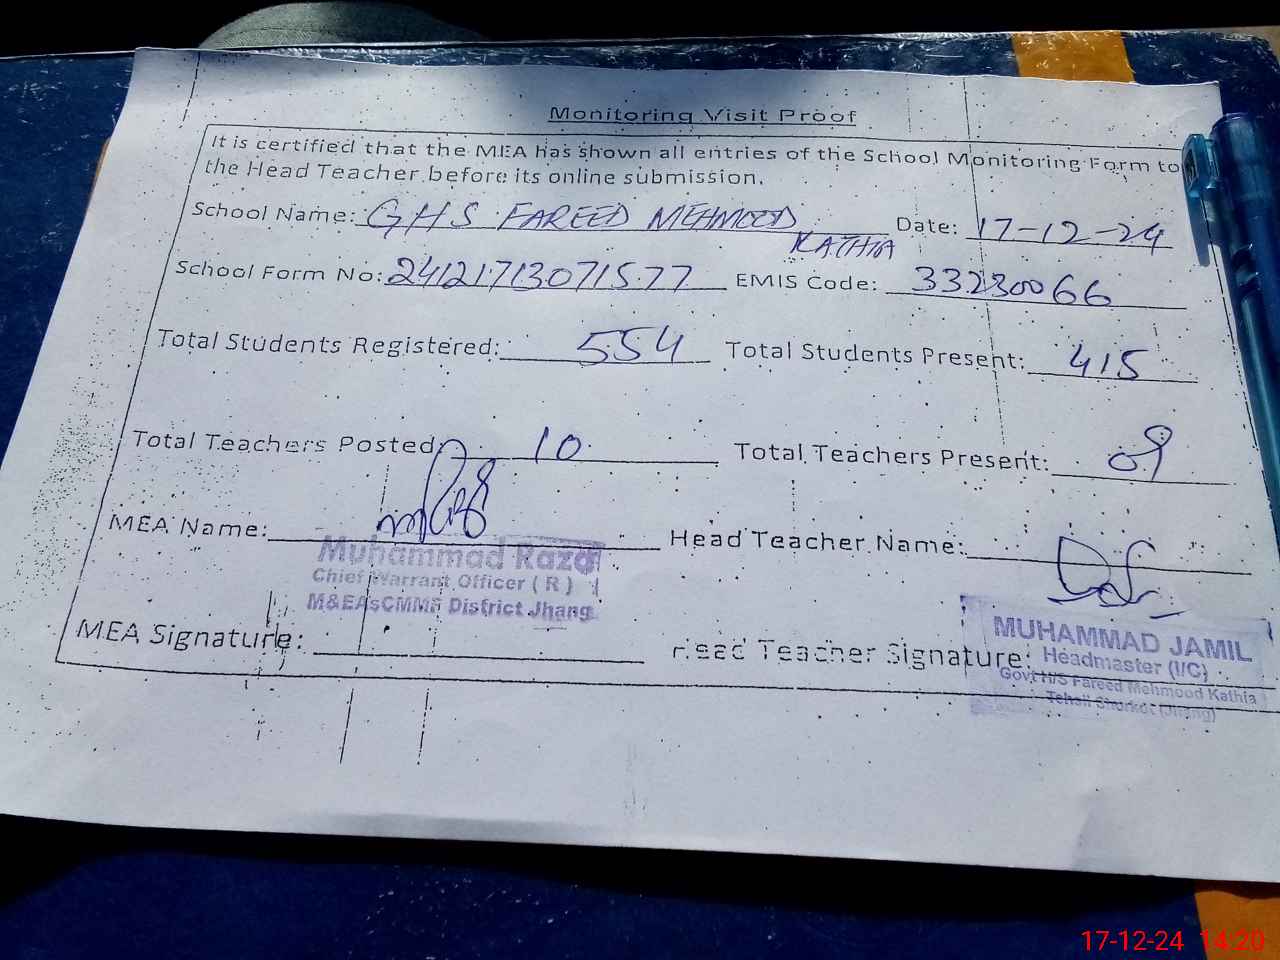 Monitoring Visit Proof
It is certified that the MEA has shown all entries of the School Monitoring Form to
the Head Teacher before its online submission.
School Name: GHS FAREED MEHMOOD KATHIA Date: 17-12-24
School Form No: 24121713071577 EMIS Code: 33230066
Total Students Registered: 554 Total Students Present: 415
Total Teachers Posted: 10 Total Teachers Present: 09
MEA Name: Head Teacher Name:
Muhammad Raza
Chief Warrant Officer ( R )
M&EAsCMMF District Jhang
MEA Signature: Head Teacher Signature:
MUHAMMAD JAMIL
Headmaster (I/C)
Govt H/S Fareed Mehmood Kathia
Tehsil Shorkot (Jhang)
17-12-24 14:20